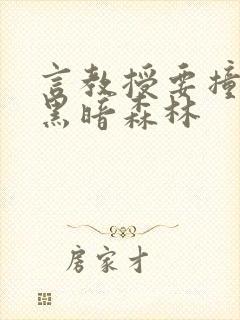 言教授要撞
黑暗森林
房家才